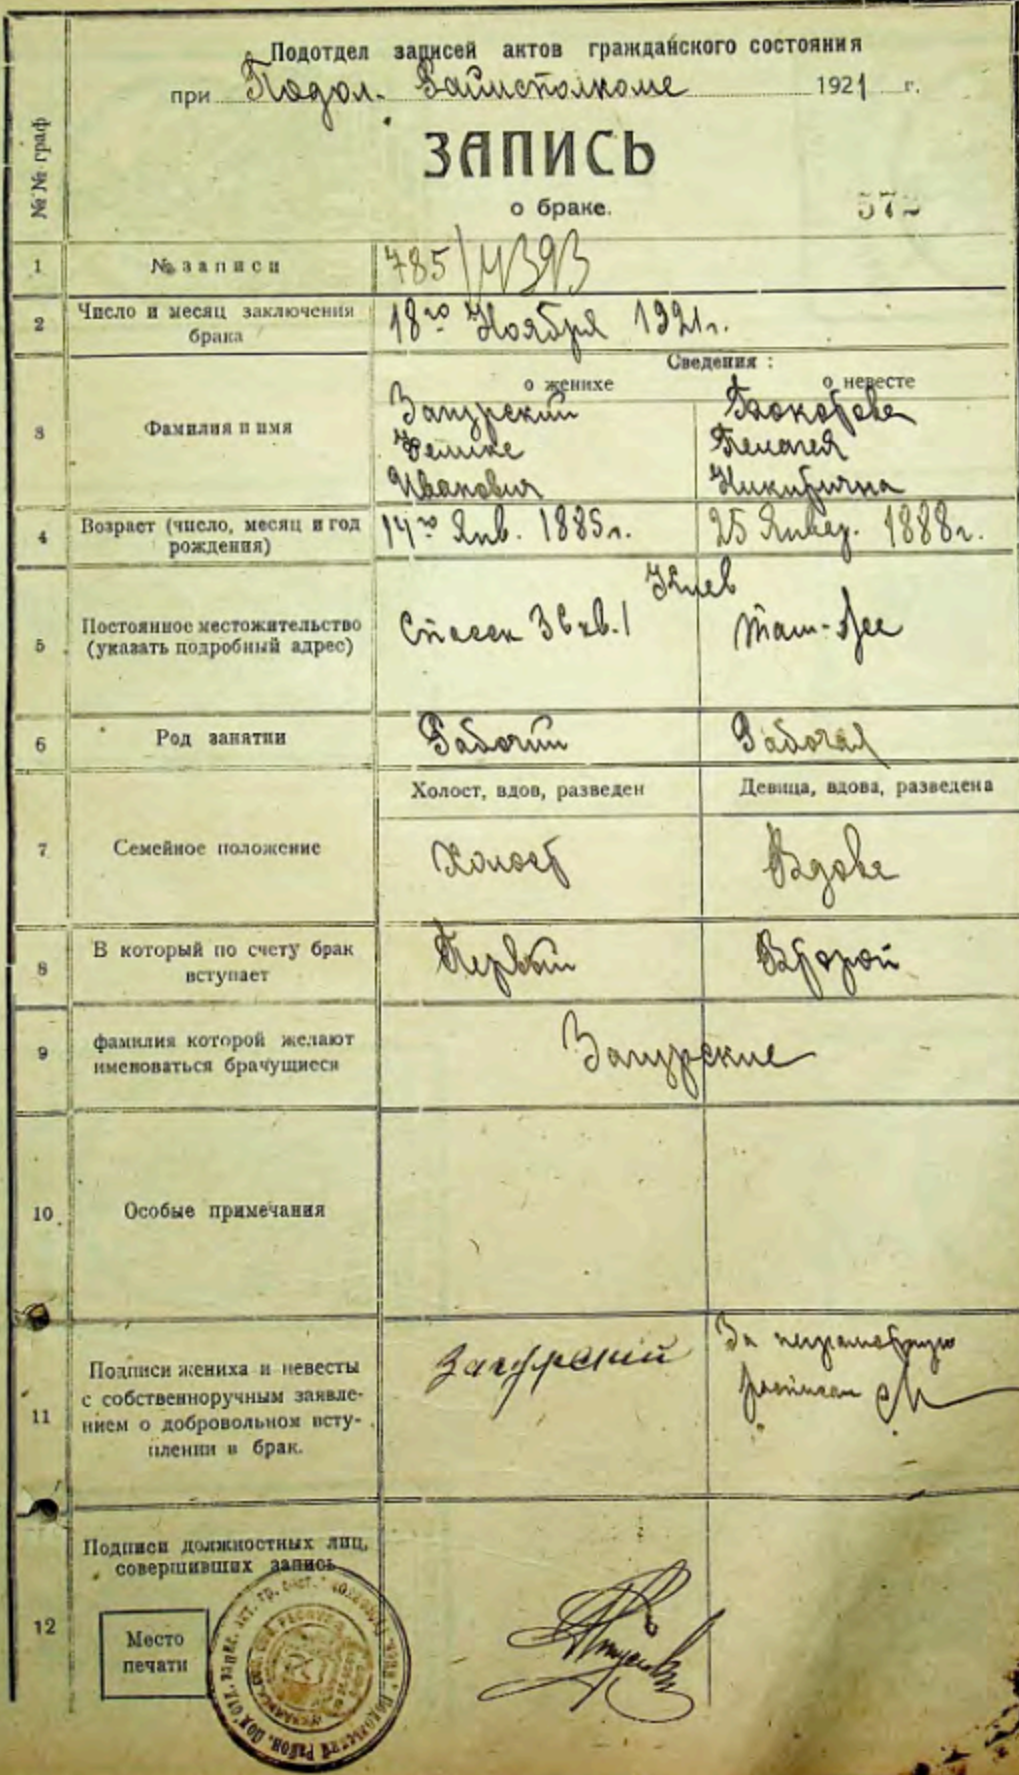 Подотдел записей актов гражданского состояния
при Подол. Райисполкоме 1921 г.
ЗАПИСЬ
о браке.
572
№№ граф
1 № записи 785/4393
2 Число и месяц заключения
брака
18го Ноября 1921г.
Сведения :
о женихе о невесте
3 Фамилия и имя
Загурский
Иванович
Никифоровна
4 Возраст (число, месяц и год
рождения)
14го Янв. 1885г. 25 Январ. 1888г.
5 Постоянное местожительство
(указать подробный адрес)
Киев
Спасск 36 кв. 1 там-же
6 Род занятии Рабочий Рабочая
Холост, вдов, разведен Девица, вдова, разведена
7 Семейное положение Холост Вдова
8 В который по счету брак
вступает
Первый Второй
9 фамилия которой желают
именоваться брачущиеся
Загурские
10 Особые примечания
11 Подписи жениха и невесты
с собственноручным заявле-
нием о добровольном всту-
плении в брак.
Загурский
За неграмотную
12 Подписи должностных лиц,
совершивших запись
Место
печати